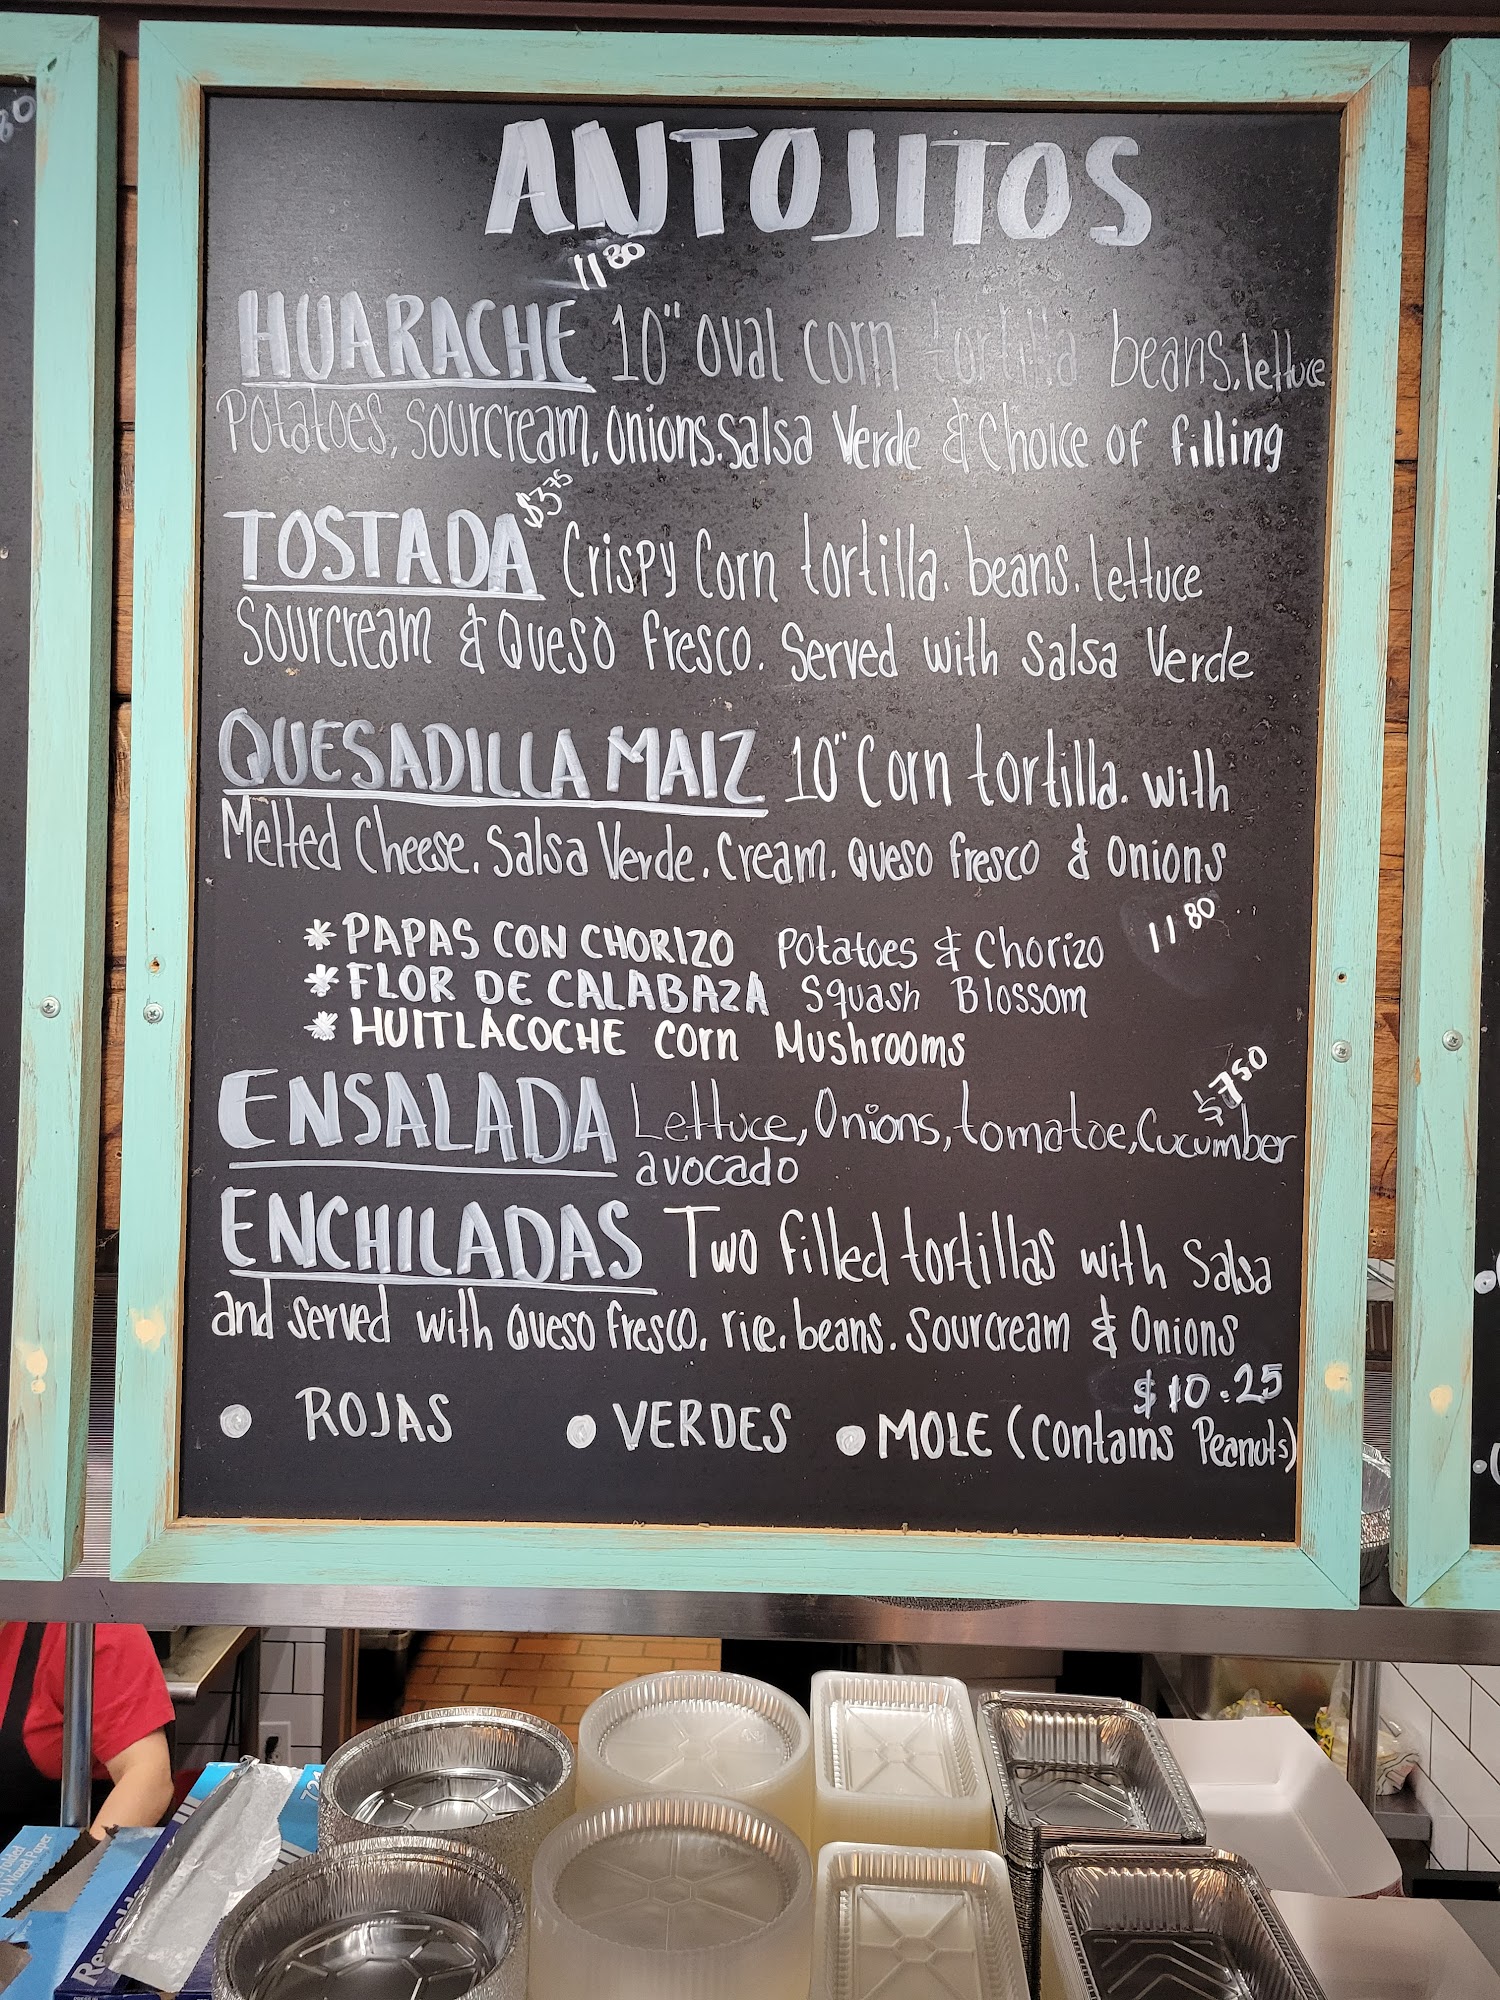 ANTOJITOS
11 80
HUARACHE 10" oval corn tortilla beans, lettuce
Potatoes, sourcream, onions. Salsa Verde & Choice of filling
$3 75
TOSTADA Crispy Corn tortilla. beans. lettuce
Sourcream & Queso fresco. Served with salsa Verde
QUESADILLA MAIZ 10" Corn tortilla. with
Melted Cheese. Salsa Verde. Cream. Queso fresco & Onions
11 80
* PAPAS CON CHORIZO Potatoes & Chorizo
* FLOR DE CALABAZA Squash Blossom
* HUITLACOCHE Corn Mushrooms
$7 50
ENSALADA Lettuce, Onions, tomatoe, Cucumber
avocado
ENCHILADAS Two filled tortillas with Salsa
and served with Queso fresco. rice. beans. Sourcream & Onions
$10.25
• ROJAS • VERDES • MOLE (Contains Peanuts)
80